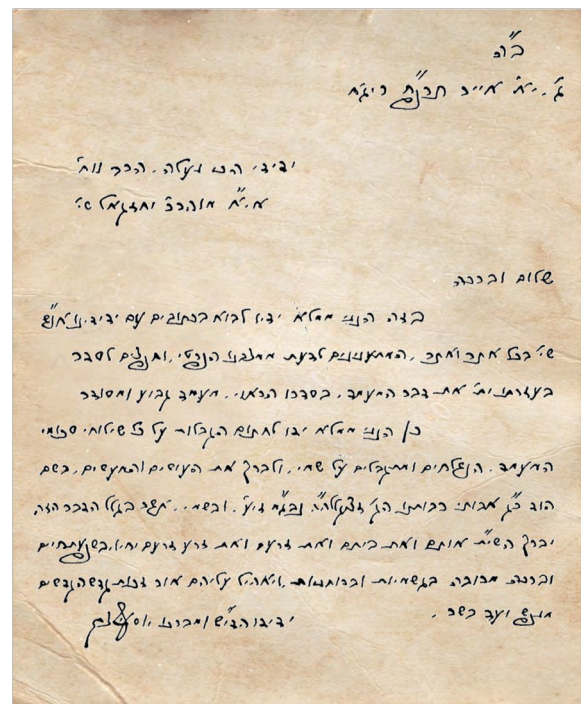 ב"ה
ג'. י"א אייר תרפ"ח ריגא
ידידי הנכ' נעלה. הרב
א.א מוהר"ר יחזקאל שי'
שלום וברכה
בזה הנני ממלא ידיו לבוא בכתובים עם ידידינו אנ"ש
שי' בכל אתר ואתר, המתענינים לדעת ממצבנו הפרטי, וחפצים לסדר
בעזרתו ית' את דבר המעמד, בסדרו הראוי, מעמד קבוע ומסודר
כן הנני ממלא ידו לחתום הקבלות על כל שילוחי סכומי
המעמד. הנשלחים ומתקבלים על שמי, ולברך את העושים והמעשים, בשם
הוד כ"ק אבותי רבותנו הק' זצוקללה"ה נבג"מ זי"ע, ובשמי, אשר בגלל הדבר הזה,
יברך השי"ת אותם ואת ביתם ואת זרעם ואת זרע זרעם יחיו, בשפעת חיים
וברכה מרובה בגשמיות וברוחניות, ויאהיל עליהם אור זכות קדש הקדשים
מנפש ועד בשר.
ידידו הדו"ש ומברכו יוסף יצחק